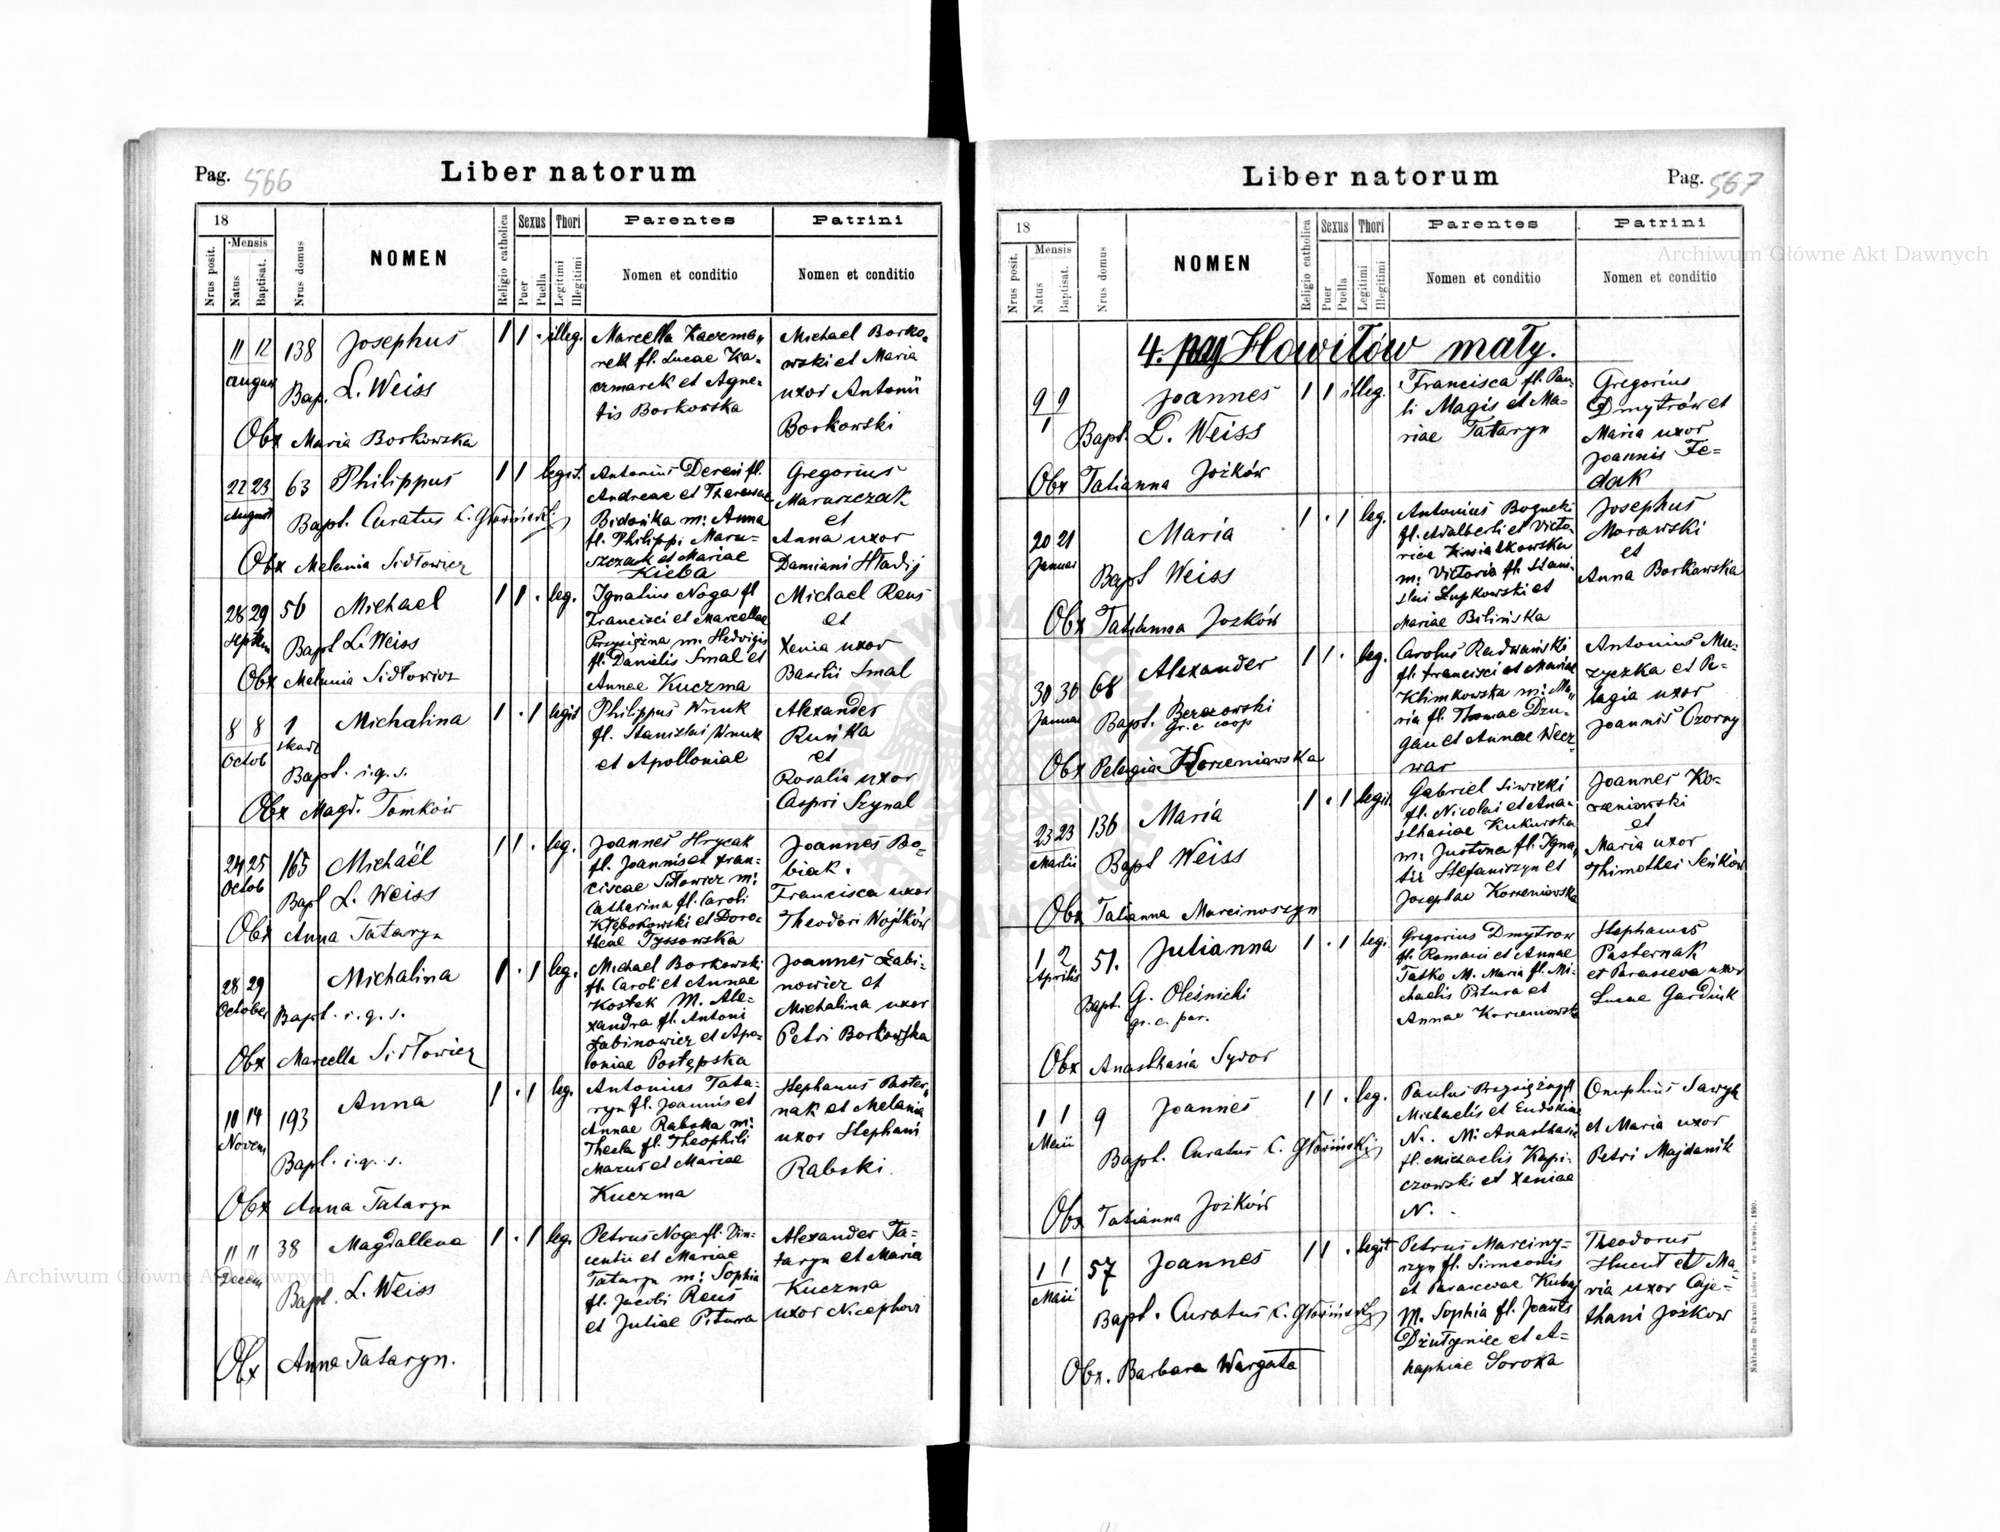 Pag. 566
Liber natorum
18
Mensis
Nrus posit.
Natus
Baptisat.
Nrus domus
NOMEN
Religio catholica
Sexus
Puer
Puella
Thori
Legitimi
Illegitimi
Parentes
Nomen et conditio
Patrini
Nomen et conditio
11 12 138 Josephus 1 1 . illeg.
August
Bap. L. Weiss
Obx Maria Borkowska
Marcella Kaczma„
rek fl. Lucae Ka-
czmarek et Agne-
tis Borkowska
Michael Borko„
wski et Maria
uxor Antonii
Borkowski
22 23 63 Philippus 1 1 legit.
August
Bapt. Curatus
Obx Melania Sidłowicz
Antonius Dereń fl.
Andreae et Theresiae
m: Anna
fl. Philippi Maru-
szczak et Mariae
Kieba
Gregorius
Maruszczak
et
Anna uxor
Damiani Hładij
28 29 56 Michael 1 1 . leg.
Septem
Bapt L. Weiss
Obx Melania Sidłowicz
Ignatius Noga fl
Francisci et Marcellae
m: Hedvigis
fl. Danielis Smal et
Annae Kuczma
Michael Reus
et
Xenia uxor
Basilii Smal
8 8 1 Michalina 1 . 1 legit
Octob
Bapt. i.q.s.
Obx Magd. Tomków
Philippus Wnuk
fl. Stanislai Wnuk
et Apolloniae
Alexander
Ruńka
et
Rosalia uxor
Caspri Szynal
24 25 165 Michaël 1 1 . leg.
Octob
Bapt L. Weiss
Obx Anna Tataryn
Joannes Hrycak
fl. Joannis et Fran-
ciscae Sidłowicz m:
Catharina fl. Caroli
Kłębokowski et Doro-
theae Tyssowska
Joannes Bo-
biak.
Francisca uxor
Theodori Wojtków
28 29 Michalina 1 . 1 leg.
October
Bapt. i.q.s.
Obx Marcella Sidłowicz
Michael Borkowski
fl. Caroli et Annae
Kostek M. Ale-
xandra fl. Antoni
Łabinowicz et Apo-
loniae Postępska
Joannes Łabi-
nowicz et
Michalina uxor
Petri Borkowska
10 14 193 Anna 1 . 1 leg.
Novem
Bapt. i.q.s.
Obx Anna Tataryn
Antonius Tata-
ryn fl. Joannis et
Annae Rabska m:
Thecla fl. Theophili
Mazur et Mariae
Kuczma
Stephanus Paster„
nak et Melania
uxor Stephani
Rabski.
11 11 38 Magdallena 1 . 1 leg.
Decem
Bapt. L. Weiss
Obx Anna Tataryn.
Petrus Noga fl. Vin-
centii et Mariae
Tataryn m: Sophia
fl. Jacobi Reus
et Juliae Pitura
Alexander Ta-
taryn et Maria
Kuczma
uxor Nicephori
Liber natorum
Pag. 567
18
Mensis
Nrus posit.
Natus
Baptisat.
Nrus domus
NOMEN
Religio catholica
Sexus
Puer
Puella
Thori
Legitimi
Illegitimi
Parentes
Nomen et conditio
Patrini
Nomen et conditio
4. Howiłów mały.
9 9 Joannes 1 1 illeg.
1
Bapt. L. Weiss
Obx Tatianna Jożków
Francisca fl. Pau-
li Magis et Ma-
riae Tataryn
Gregorius
Dmytrów et
Maria uxor
Joannis Fe-
dak
20 21 Maria 1 . 1 leg.
Januar
Bapt Weiss
Obx Tatianna Jożków
Antonius Bogncki
fl. Adalberti et Victo-
riae Kwiatkowska
m: Victoria fl. Stani-
slai Łupkowski et
Mariae Bilińska
Josephus
Morawski
et
Anna Borkowska
30 30 68 Alexander 1 1 . leg.
Januar
Bapt. Berezowski
gr. c. coop
Obx Pelagia Korzeniowska
Carolus Radwański
fl. Francisci et Mariae
Klimkowska m: Ma„
ria fl. Thomae Dzu-
gan et Annae Wecz-
war
Antonius Mu-
zyczka et Pe-
lagia uxor
Joannis Czorny
23 23 136 Maria 1 . 1 legit.
Martii
Bapt Weiss
Obx Tatianna Marcinoszyn
Gabriel Siwizki
fl. Nicolai et Ana-
sthasiae Kukurska
m: Justina fl. Igna„
tii Stefaniszyn et
Josephae Korzeniowska
Joannes Ko-
rzeniowski
et
Maria uxor
Thimothei Seńków
1 2 51. Julianna 1 . 1 leg.
Aprilis
Bapt. G. Oleśnicki
gr. c. par.
Obx Anasthasia Sywor
Gregorius Dmytrow
fl. Romani et Annae
Tatko M. Maria fl. Mi-
chaelis Pitura et
Annae Korzeniowska
Stephanus
Pasternak
et Parasceva uxor
Lucae Garduik
1 1 9 Joannes 1 1 . leg.
Maii
Bapt. Curatus
Obx Tatianna Jożków
Paulus
Michaelis et Eudokiae
N. M: Anasthasia
fl. Michaelis Kapi-
czowski et Xeniae
N. -
Onuphrius Sawyk
et Maria uxor
Petri Majdanik
1 1 57 Joannes 1 1 . legit
Maii
Bapt. Curatus
Obx. Barbara Wargata
Petrus Marciny-
szyn fl. Simeonis
et Parascevae Kubaj
M. Sophia fl. Joannis
et A-
haphiae Soroka
Theodorus
Hucul et Ma-
ria uxor Caje-
thani Jożkow
Nakładem Drukarni Ludowej we Lwowie. 1890.
Archiwum Główne Akt Dawnych
Archiwum Główne Akt Dawnych